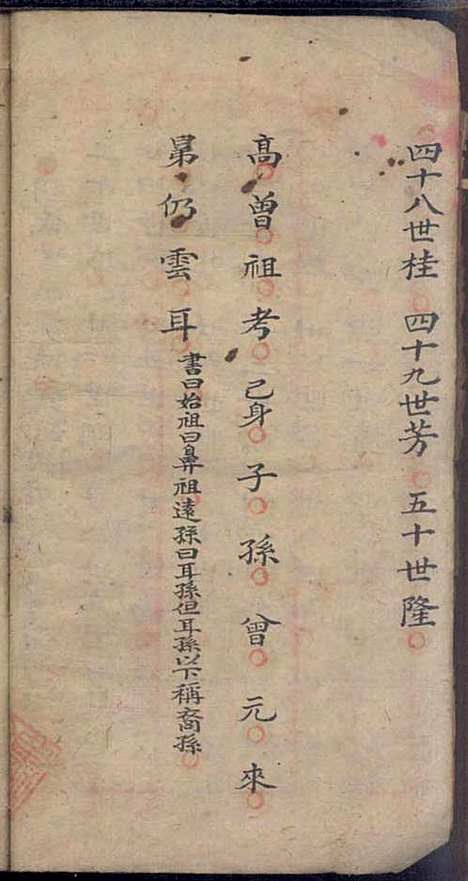 四十八世桂 四十九世芳 五十世隆
高曾祖考己身子孫曾元來
晜仍雲耳書曰始祖曰鼻祖遠孫曰耳孫但耳孫以下稱裔孫